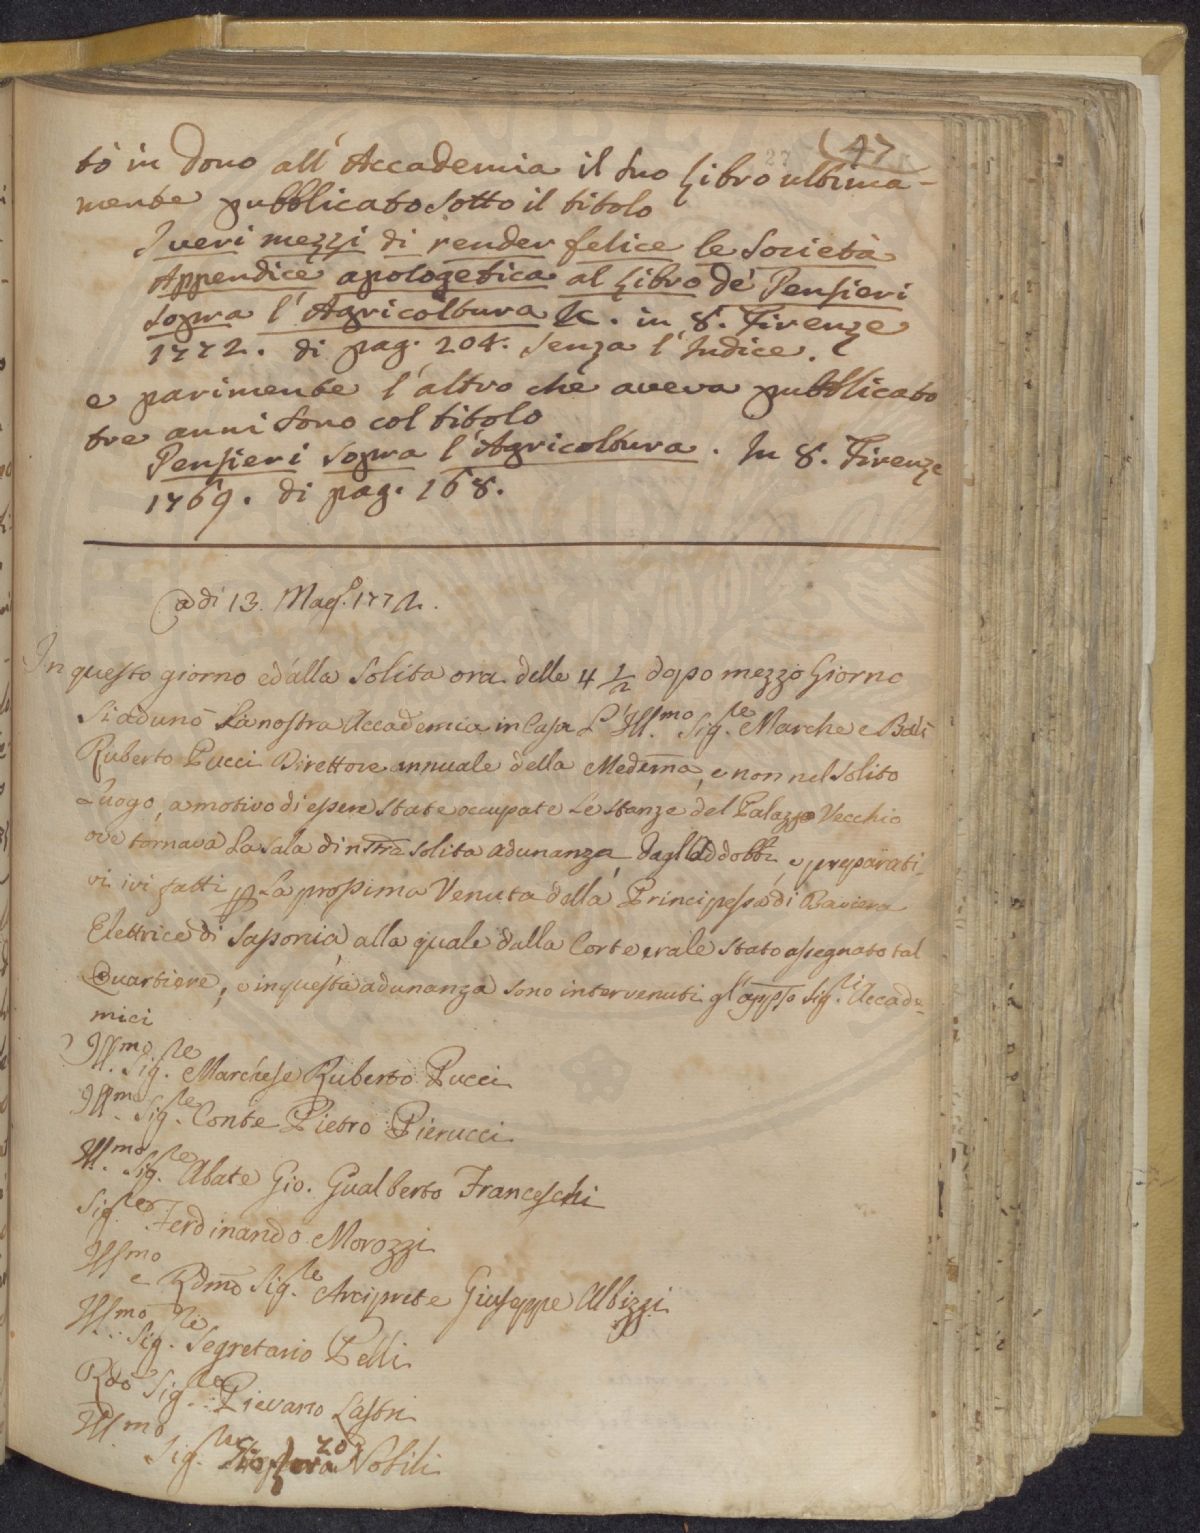 47
27
tò in dono all'Accademia il suo Libro ultima-
mente pubblicato sotto il titolo
I veri mezzi di render felice le Società
Appendice apologetica al Libro de' Pensieri
sopra l'Agricoltura &c. in 8. Firenze
1772. di pag. 204. senza l'Indice.
e parimente l'altro che aveva pubblicato
tre anni sono col titolo
Pensieri sopra l'Agricoltura. In 8. Firenze
1769. di pag. 168.
Adi 13. Magg.o 1772.
In questo giorno ed alla solita ora delle 4 1/2 dopo mezzo Giorno
si adunò la nostra Accademia in Casa L'Ill.mo Sig.re Marchese Balì
Ruberto Pucci Direttore annuale della Medema, e non nel solito
Luogo, a motivo di essere state occupate le stanze del Palazzo Vecchio
ove tornava la sala di nstra solita adunanza, dagl'Addobbi, e preparati-
vi ivi fatti p la prossima Venuta della Principessa di Baviera
Elettrice di Sassonia, alla quale dalla Corte erale stato assegnato tal
Quartiere, e in questa adunanza sono intervenuti gl'appso Sig.ri Accade-
mici
Ill.mo Sig.re Marchese Ruberto Pucci
Ill.mo Sig.re Conte Pietro Pierucci
Ill.mo Sig.re Abate Gio. Gualberto Franceschi
Sig.re Ferdinando Morozzi
Ill.mo
e Rdmo Sig.re Arciprete Giuseppe Albizzi
Ill.mo Sig.re Segretario Pelli
Rdo Sig.re Pievano Lastri
Ill.mo
Sig.re Nobili